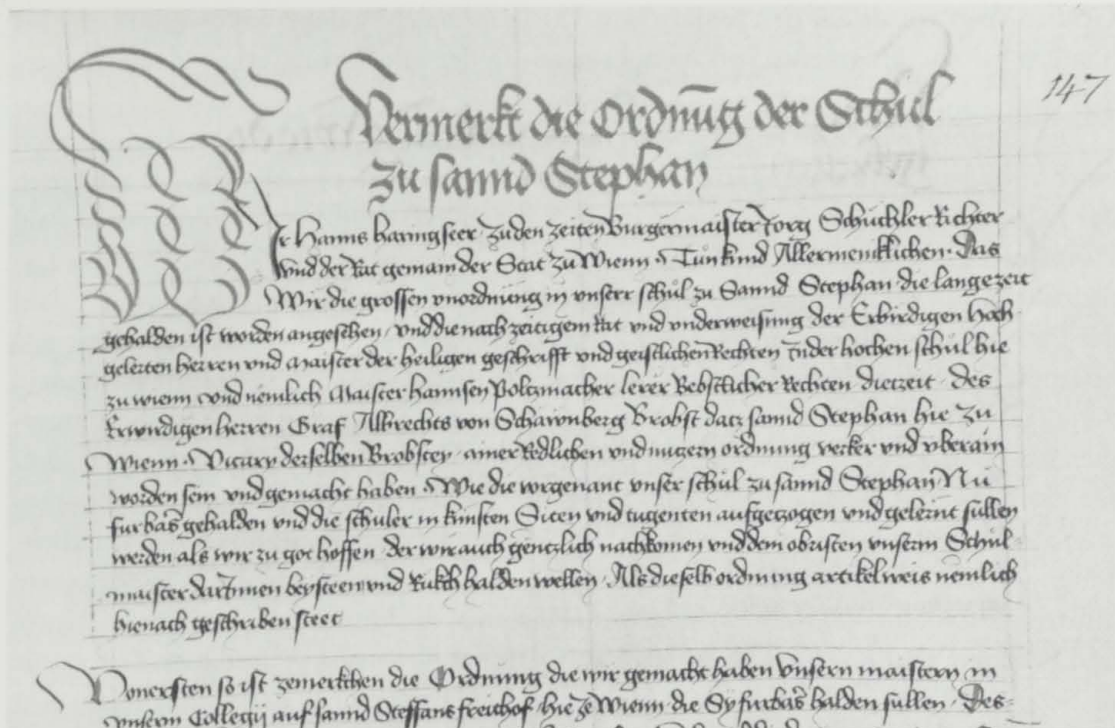 147
Vermerkt die Ordnu͂g der Schul
zu sannd Stephan
Wir Hanns haringseer zuden zeiten Burgermaister Jorg Schuchler Richter
vnd der Rat gemain der Stat zu Wienn Tun kund Allermenklichen Das
Wir die grossen vnordnung in vnserr schul zu Sannd Stephan die lange zeit
gehalden ist worden angesehen vnd die nach zeitigem Rat vnd vnderweisung der Erbirdigen Hoch
gelerten herren vnd Maister der heiligen geschrifft vnd geistlichen Rechten In der hochen schul hie
zu wienn vnd nemlich Maister hannsen Poltzmacher lerer Bebstlicher Rechten dietzeit des
Erwirdigen herren Graf Albrechts von Schawnberg Brobst datz sannd Stephan hie zu
Wienn Vicary derselben Brobstey ainer Redlichen vnd nutzern ordnung vberain
worden sein vnd gemacht haben Wie die vorgenant vnser schul zu sannd Stephan Nu
furbas gehalden vnd die schuler in kunsten Siten vnd tugenten aufgetzogen vnd gelernt sullen
werden als wir zu got hoffen der wir auch gentzlich nachkomen vnd dem obristen vnserm Schul
maister darInnen beysteen vnd Rukh halden wellen Als dieselb ordnung artikelweis nemlich
hienach geschriben steet
Vonersten so ist zemerkchen die Ordnung die wir gemacht haben Vnsern maistern in
vnserm Collegij auf sannd Steffans freithof hie ze Wienn die Sy furbas halden sullen Des